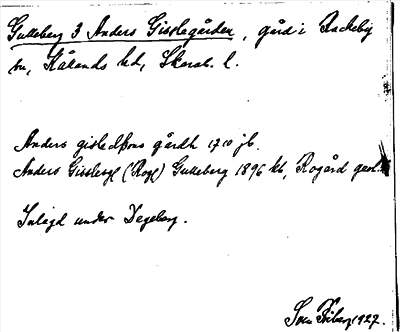 Gulleberg 3 Anders Gisslegården, gård i Rackeby
sn, Kållands hd, Skarab. l.
Anders gisledsons gårdh 1710 jb.
Anders Gisslegd (Rogd) Gulleberg 1896 kb, Rogård
Inlagd under Degeberg.
Sven Friberg 1927.